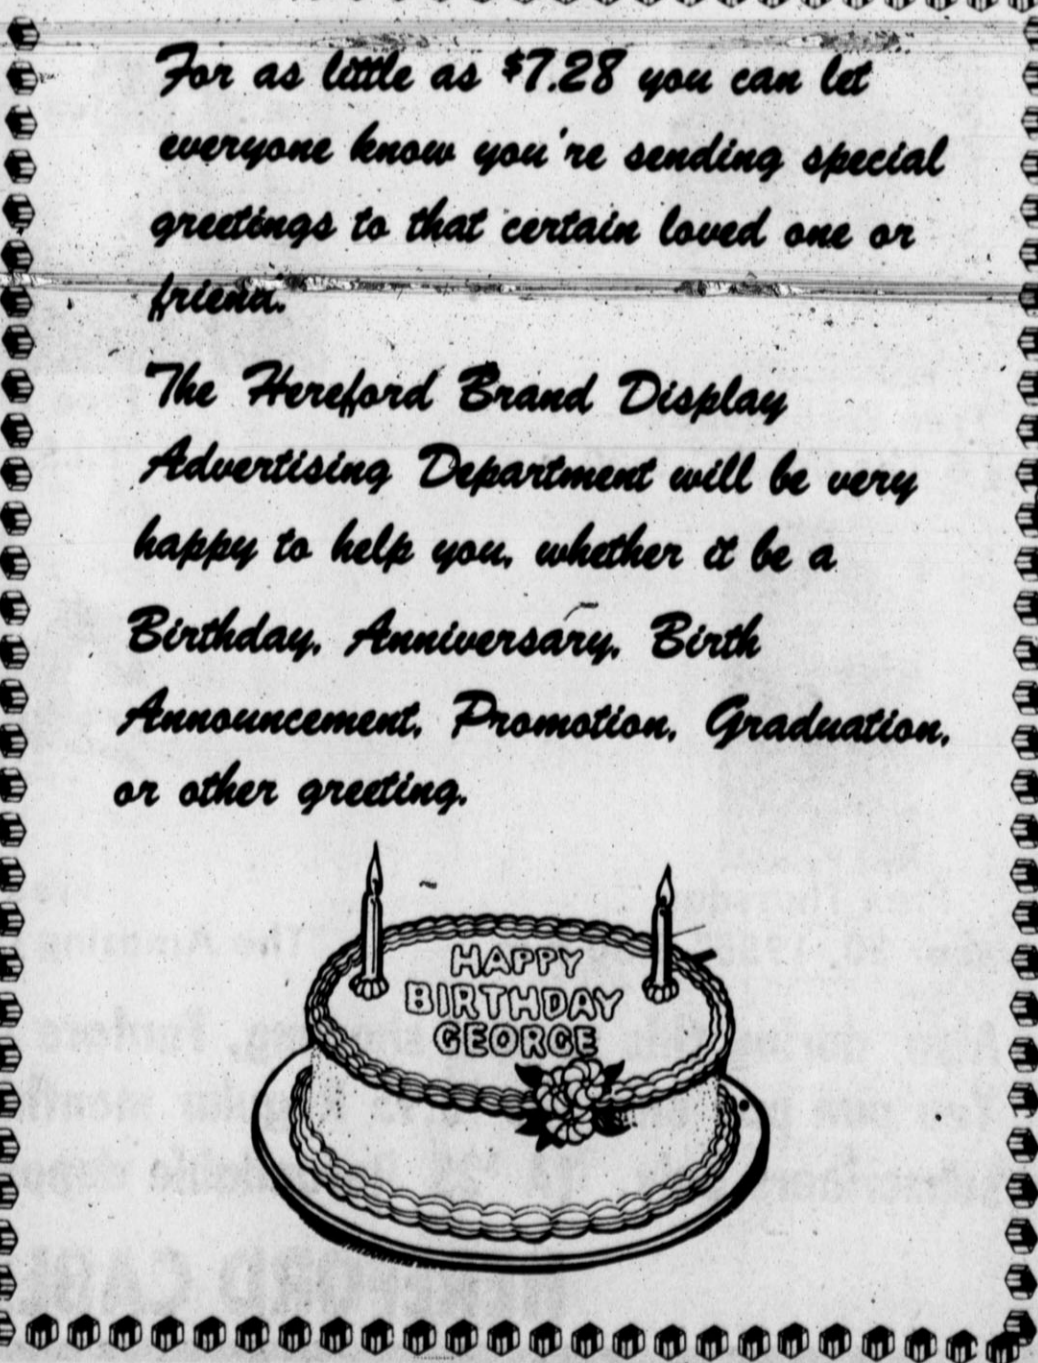 For as little as $7.28 you can let
everyone know you're sending special
greetings to that certain loved one or
friend.
The Hereford Brand Display
Advertising Department will be very
happy to help you, whether it be a
Birthday, Anniversary, Birth
Announcement, Promotion, Graduation,
or other greeting.
HAPPY
BIRTHDAY
GEORGE